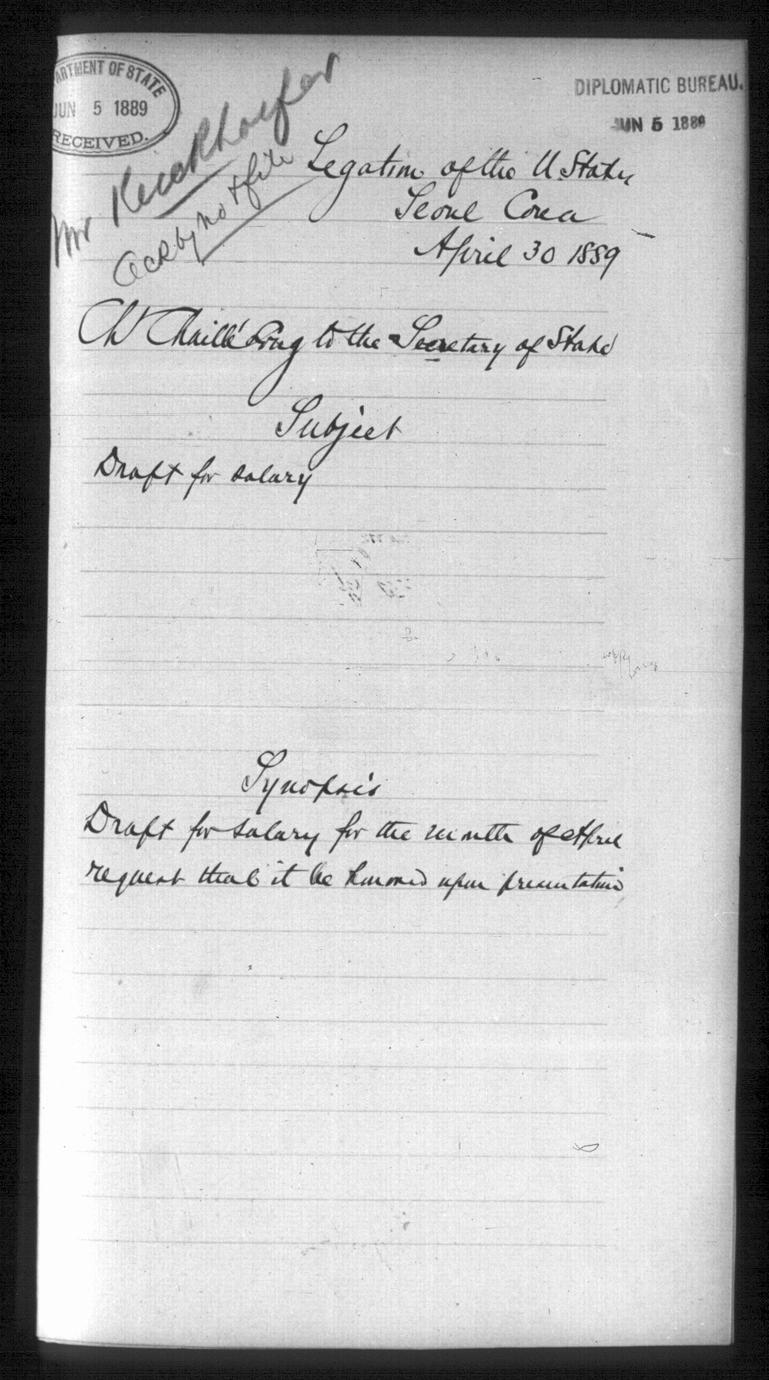 DEPARTMENT OF STATE
JUN 5 1889
RECEIVED.
DIPLOMATIC BUREAU.
JUN 5 1889
Mr Kieckhoefer
Ack by not & file
Legation of the U States
Seoul Corea
April 30 1889
Ch Chaillé Long to the Secretary of State
Subject
Draft for salary
Synopsis
Draft for salary for the month of April
request that it be honored upon presentation